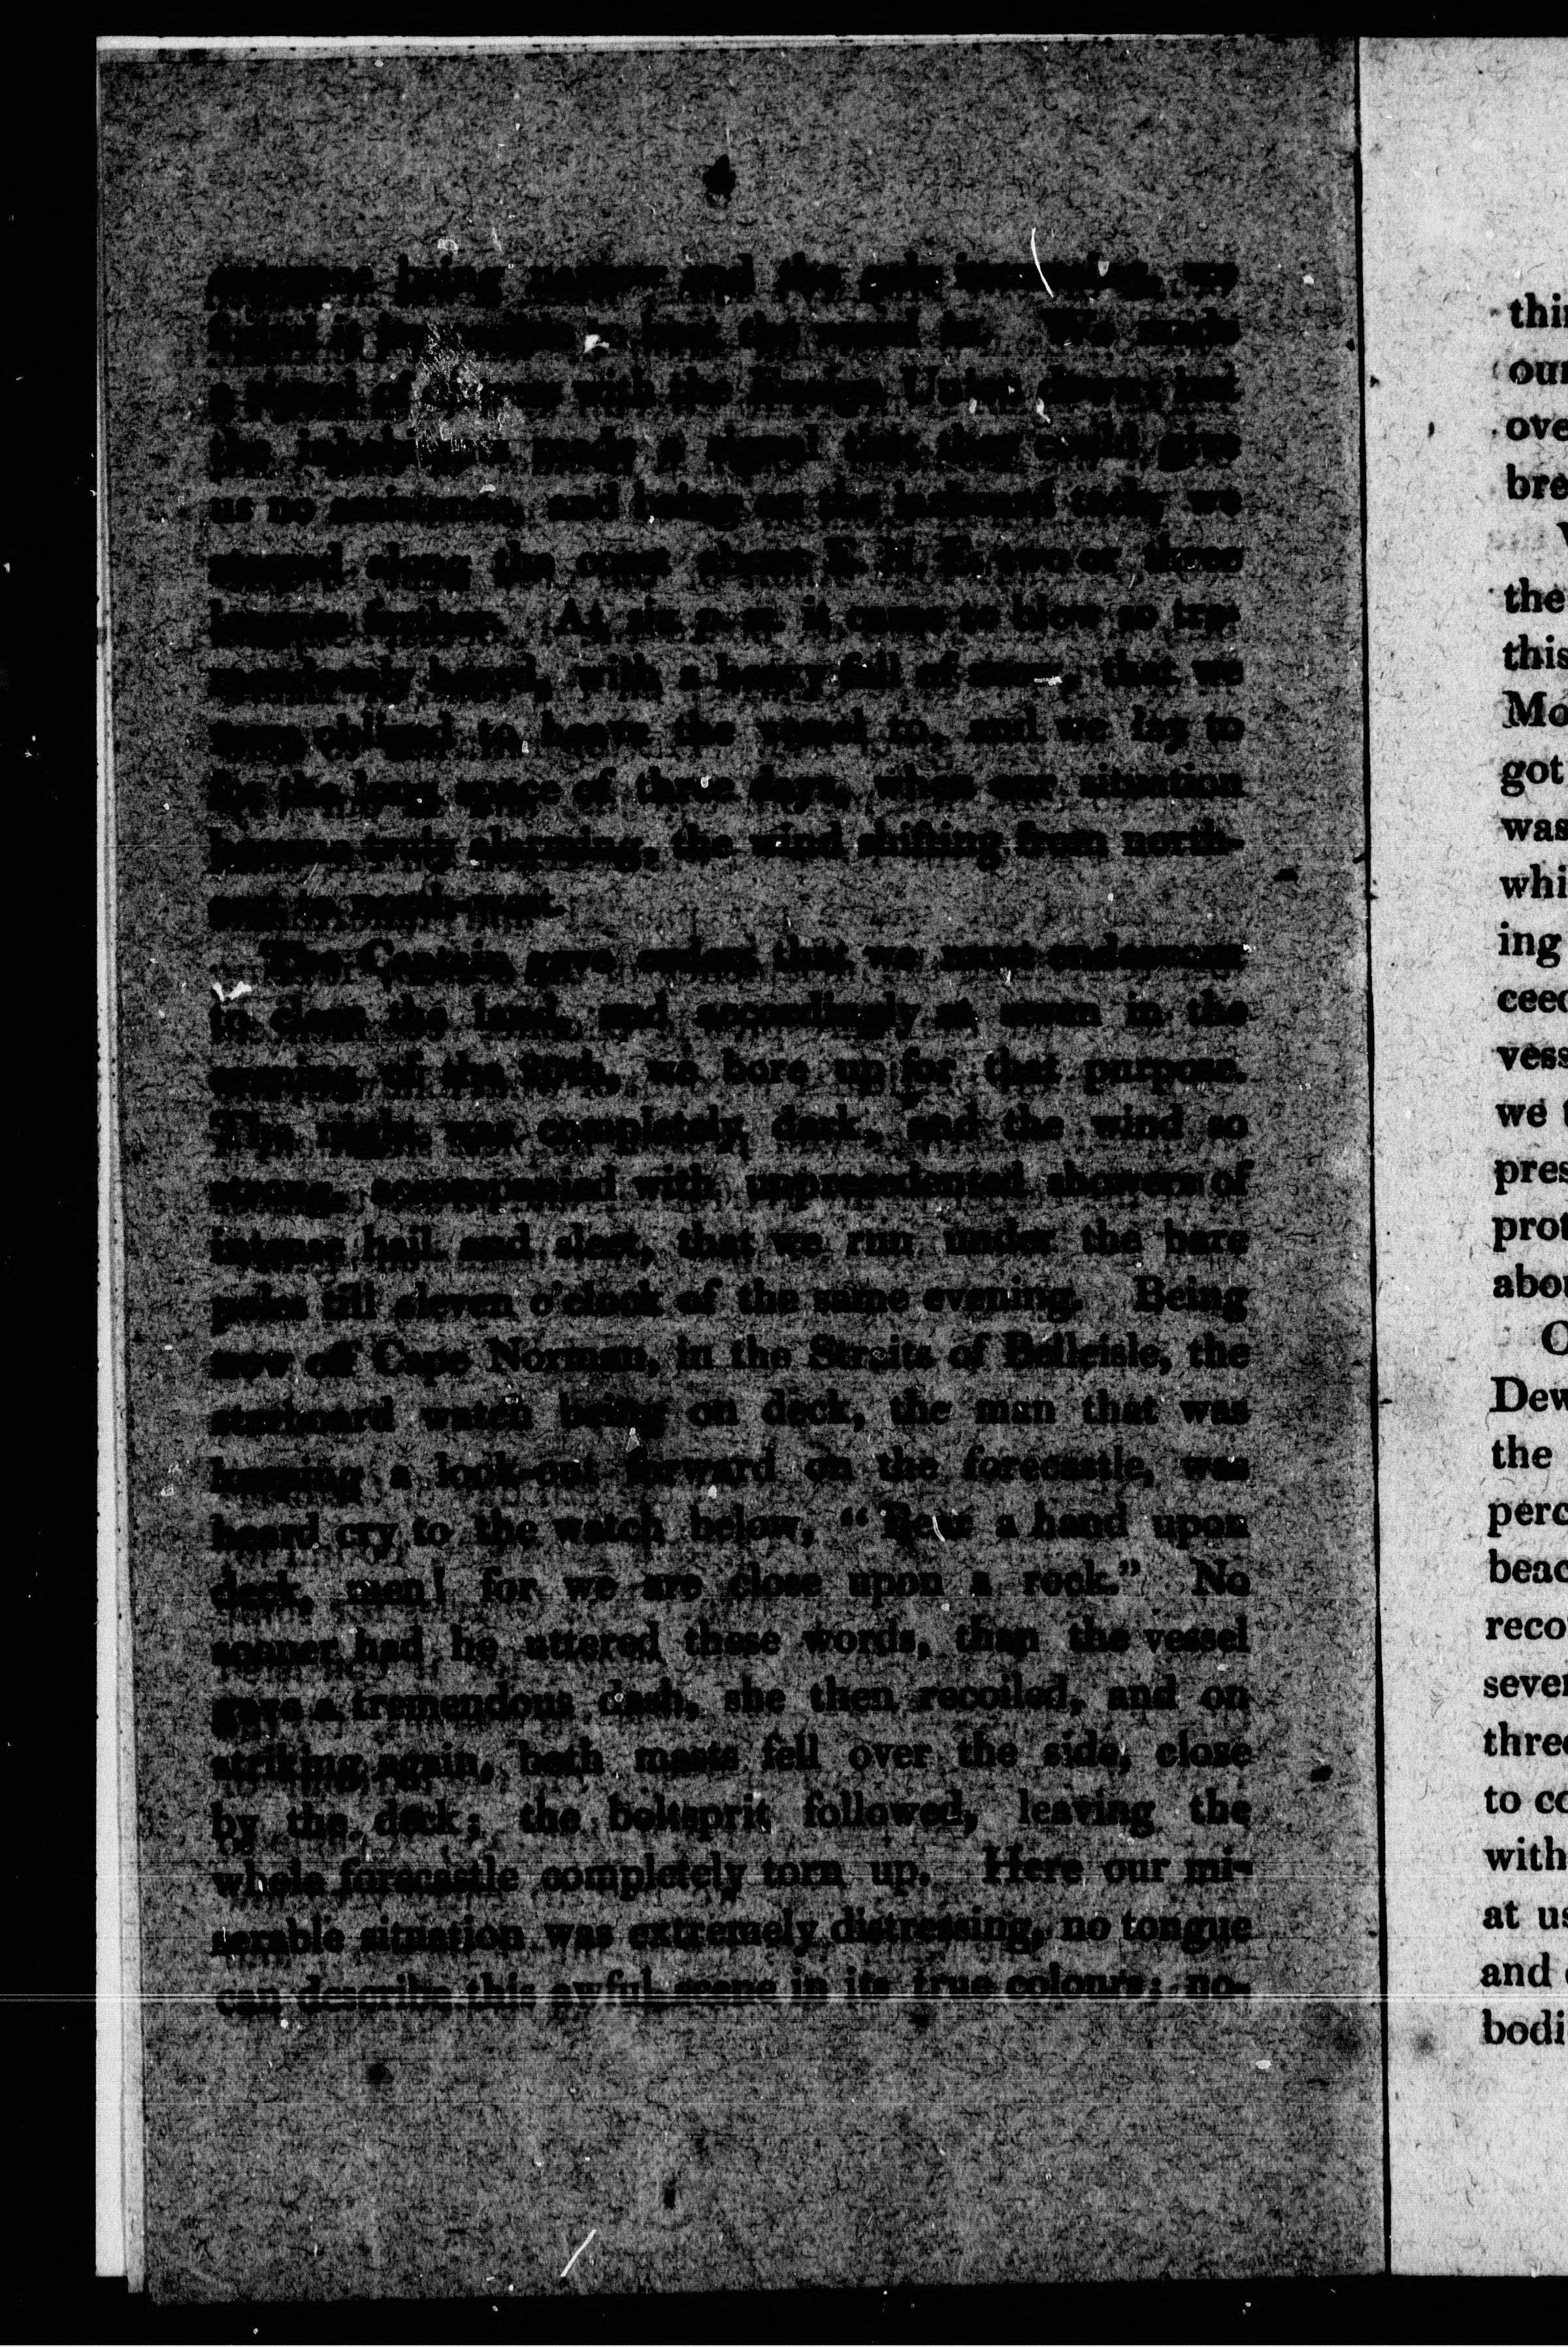 entrance being narrow and the gale increasing, we
found it impossible to beat the vessel in. We made
a signal of distress with the Ensign, Union down; but
the inhabitants made a signal that they could give
us no assistance, and being on the larboard tack, we
stretched along the coast about E. N. E. two or three
leagues further. At six p. m. it came to blow so tre-
mendously heavy, with a heavy fall of snow, that we
were obliged to heave the vessel to, and we lay to
for the long space of three days, when our situation
became truly alarming, the wind shifting from north-
east to north-west.
The Captain gave orders that we must endeavour
to clear the land, and accordingly at seven in the
evening of the 20th, we bore up for that purpose.
The night was completely dark, and the wind so
strong, accompanied with unprecedented showers of
intense hail and sleet, that we run under the bare
poles till eleven o'clock of the same evening. Being
now off Cape Norman, in the Straits of Belleisle, the
starboard watch being on deck, the man that was
keeping a look-out forward on the forecastle, was
heard cry to the watch below, “Bear a hand upon
deck, men! for we are close upon a rock.” No
sooner had he uttered these words, than the vessel
gave a tremendous dash, she then recoiled, and on
striking again, both masts fell over the side, close
by the deck; the boltsprit followed, leaving the
whole forecastle completely torn up. Here our mi-
serable situation was extremely distressing, no tongue
can describe this awful scene in its true colours; no-
thi
our
ove
bre
the
this
Mo
got
was
whi
ing
ceed
vess
we
pres
prot
abou
O
Dew
the
perc
beac
reco
seve
three
to co
with
at us
and
bodi